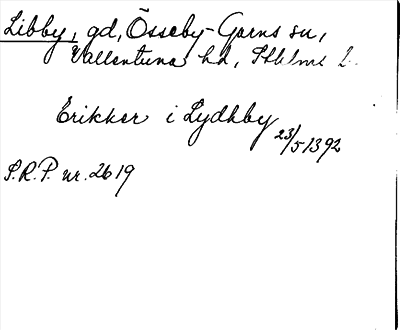 Libby, gd, Össeby-Garns sn,
Vallentuna hd, Sthlms l.
Erikker i Lydhby 23/5 1392
S.R.P. nr. 2619